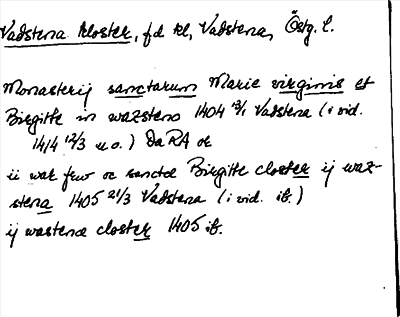 Vadstena kloster, f d kl, Vadstena, Östg. l.
Monasterij sanctarum Marie virginis et
Birgitte in wazstena 1404 13/1 Vadstena (i vid.
1414 12/3 u o.) Da RA or
ii war frw oc sancte Birgitte closter ij waz-
stena 1405 21/3 Vadstena (i vid. ib.)
ij wastena closter 1405 ib.